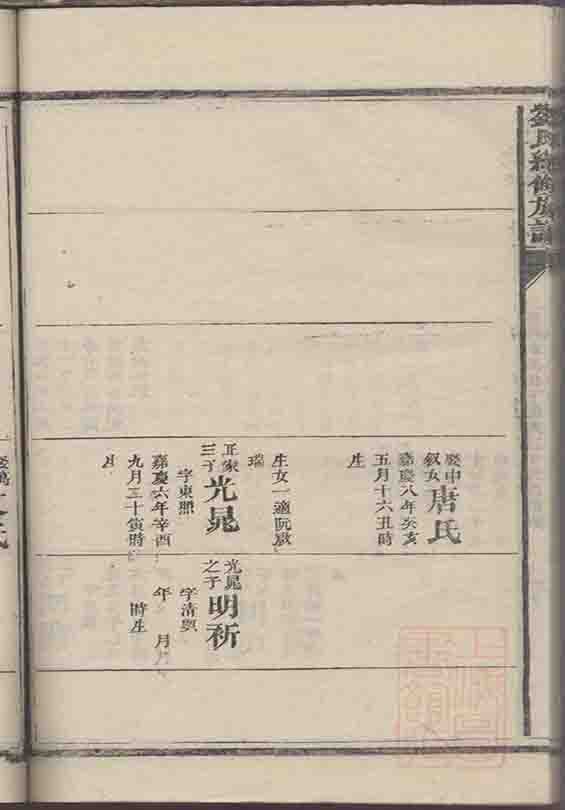 劉氏續修族譜
娶申
叙女 唐氏
嘉慶八年癸亥
五月十六丑時
生
生女一適阮啟
瑞
正家
三子 光晁
字東照
嘉慶六年辛酉
九月三十寅時
生
光晁
之子 明祈
字清興
年 月 日
時生